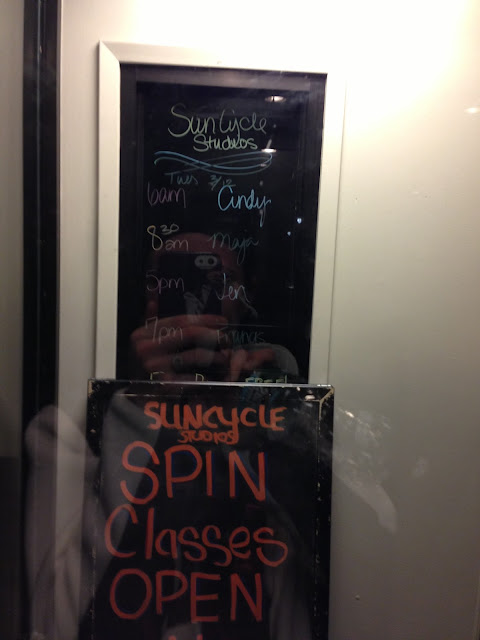 SunCycle
Studios
Tues 3/12
6am Cindy
8 30 am Maja
5pm Jen
7pm
SUNCYCLE
STUDIOS
SPIN
Classes
OPEN